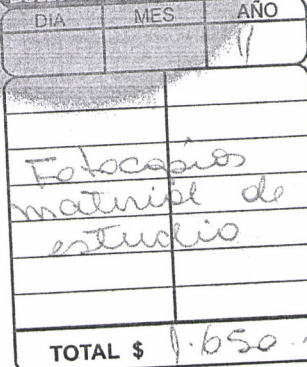 DIA MES AÑO
11
Fotocopias
material de
estudio
TOTAL $ 1.650.-